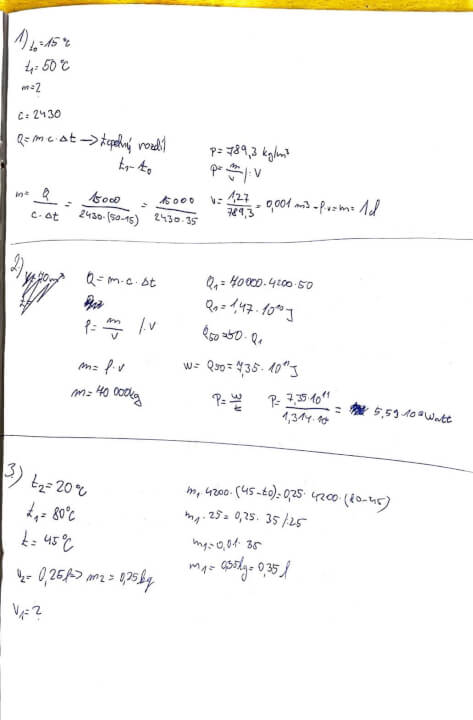 1) t₀=15°C
t₁=50°C
m=?
c=2430
Q=m·c·Δt → tepelný rozdíl
t₁-t₀
m= Q / c·Δt = 15000 / 2430·(50-15) = 15000 / 2430·35
ρ=789,3 kg/m³
ρ= m/v /·V
V= 1,27 / 789,3 = 0,001 m³
2)
Q=m·c·Δt
ρ= m/v /·V
m=ρ·v
m=40 000kg
Q₁=40000·4200·50
Q₁=1,47·10¹⁰J
Q₅₀=50·Q₁
W=Q₅₀=7,35·10¹¹J
P= W/t P= 7,35·10¹¹ / 1,314· = 5,59·10 Watt
3.) t₂=20°C
t₁=80°C
t=45°C
v₂=0,25l=>m₂=0,25kg
V₁=?
m₁·4200·(45-t₀)=0,25·4200·(80-45)
m₁·25=0,25·35 /:25
m₁=0,01·35
m₁=0,35kg=0,35l